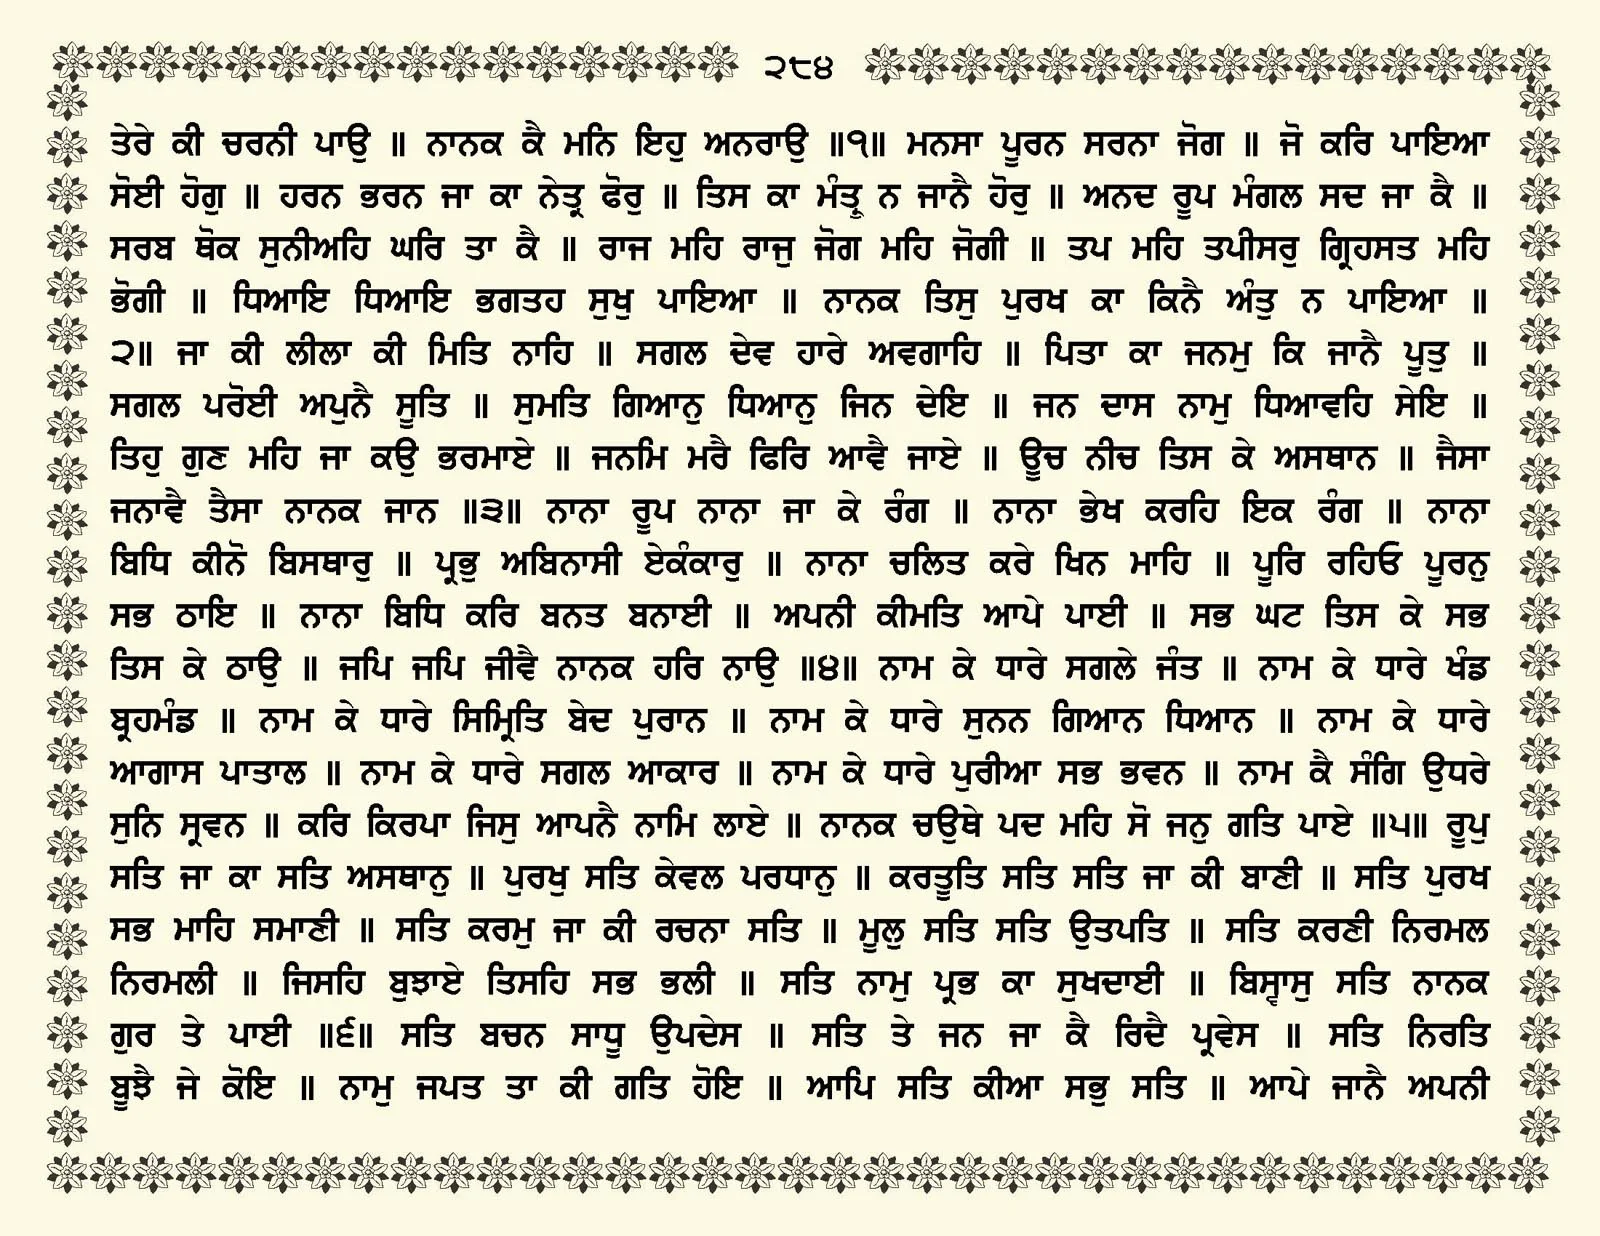 ੨੮੪
ਤੇਰੇ ਕੀ ਚਰਨੀ ਪਾਉ ॥ ਨਾਨਕ ਕੈ ਮਨਿ ਇਹੁ ਅਨਰਾਉ ॥੧॥ ਮਨਸਾ ਪੂਰਨ ਸਰਨਾ ਜੋਗ ॥ ਜੋ ਕਰਿ ਪਾਇਆ
ਸੋਈ ਹੋਗੁ ॥ ਹਰਨ ਭਰਨ ਜਾ ਕਾ ਨੇਤ੍ਰ ਫੋਰੁ ॥ ਤਿਸ ਕਾ ਮੰਤ੍ਰੁ ਨ ਜਾਨੈ ਹੋਰੁ ॥ ਅਨਦ ਰੂਪ ਮੰਗਲ ਸਦ ਜਾ ਕੈ ॥
ਸਰਬ ਥੋਕ ਸੁਨੀਅਹਿ ਘਰਿ ਤਾ ਕੈ ॥ ਰਾਜ ਮਹਿ ਰਾਜੁ ਜੋਗ ਮਹਿ ਜੋਗੀ ॥ ਤਪ ਮਹਿ ਤਪੀਸਰੁ ਗ੍ਰਿਹਸਤ ਮਹਿ
ਭੋਗੀ ॥ ਧਿਆਇ ਧਿਆਇ ਭਗਤਹ ਸੁਖੁ ਪਾਇਆ ॥ ਨਾਨਕ ਤਿਸੁ ਪੁਰਖ ਕਾ ਕਿਨੈ ਅੰਤੁ ਨ ਪਾਇਆ ॥
੨॥ ਜਾ ਕੀ ਲੀਲਾ ਕੀ ਮਿਤਿ ਨਾਹਿ ॥ ਸਗਲ ਦੇਵ ਹਾਰੇ ਅਵਗਾਹਿ ॥ ਪਿਤਾ ਕਾ ਜਨਮੁ ਕਿ ਜਾਨੈ ਪੂਤੁ ॥
ਸਗਲ ਪਰੋਈ ਅਪੁਨੈ ਸੂਤਿ ॥ ਸੁਮਤਿ ਗਿਆਨੁ ਧਿਆਨੁ ਜਿਨ ਦੇਇ ॥ ਜਨ ਦਾਸ ਨਾਮੁ ਧਿਆਵਹਿ ਸੇਇ ॥
ਤਿਹੁ ਗੁਣ ਮਹਿ ਜਾ ਕਉ ਭਰਮਾਏ ॥ ਜਨਮਿ ਮਰੈ ਫਿਰਿ ਆਵੈ ਜਾਏ ॥ ਊਚ ਨੀਚ ਤਿਸ ਕੇ ਅਸਥਾਨ ॥ ਜੈਸਾ
ਜਨਾਵੈ ਤੈਸਾ ਨਾਨਕ ਜਾਨ ॥੩॥ ਨਾਨਾ ਰੂਪ ਨਾਨਾ ਜਾ ਕੇ ਰੰਗ ॥ ਨਾਨਾ ਭੇਖ ਕਰਹਿ ਇਕ ਰੰਗ ॥ ਨਾਨਾ
ਬਿਧਿ ਕੀਨੋ ਬਿਸਥਾਰੁ ॥ ਪ੍ਰਭੁ ਅਬਿਨਾਸੀ ਏਕੰਕਾਰੁ ॥ ਨਾਨਾ ਚਲਿਤ ਕਰੇ ਖਿਨ ਮਾਹਿ ॥ ਪੂਰਿ ਰਹਿਓ ਪੂਰਨੁ
ਸਭ ਠਾਇ ॥ ਨਾਨਾ ਬਿਧਿ ਕਰਿ ਬਨਤ ਬਨਾਈ ॥ ਅਪਨੀ ਕੀਮਤਿ ਆਪੇ ਪਾਈ ॥ ਸਭ ਘਟ ਤਿਸ ਕੇ ਸਭ
ਤਿਸ ਕੇ ਠਾਉ ॥ ਜਪਿ ਜਪਿ ਜੀਵੈ ਨਾਨਕ ਹਰਿ ਨਾਉ ॥੪॥ ਨਾਮ ਕੇ ਧਾਰੇ ਸਗਲੇ ਜੰਤ ॥ ਨਾਮ ਕੇ ਧਾਰੇ ਖੰਡ
ਬ੍ਰਹਮੰਡ ॥ ਨਾਮ ਕੇ ਧਾਰੇ ਸਿਮ੍ਰਿਤਿ ਬੇਦ ਪੁਰਾਨ ॥ ਨਾਮ ਕੇ ਧਾਰੇ ਸੁਨਨ ਗਿਆਨ ਧਿਆਨ ॥ ਨਾਮ ਕੇ ਧਾਰੇ
ਆਗਾਸ ਪਾਤਾਲ ॥ ਨਾਮ ਕੇ ਧਾਰੇ ਸਗਲ ਆਕਾਰ ॥ ਨਾਮ ਕੇ ਧਾਰੇ ਪੁਰੀਆ ਸਭ ਭਵਨ ॥ ਨਾਮ ਕੈ ਸੰਗਿ ਉਧਰੇ
ਸੁਨਿ ਸ੍ਰਵਨ ॥ ਕਰਿ ਕਿਰਪਾ ਜਿਸੁ ਆਪਨੈ ਨਾਮਿ ਲਾਏ ॥ ਨਾਨਕ ਚਉਥੇ ਪਦ ਮਹਿ ਸੋ ਜਨੁ ਗਤਿ ਪਾਏ ॥੫॥ ਰੂਪੁ
ਸਤਿ ਜਾ ਕਾ ਸਤਿ ਅਸਥਾਨੁ ॥ ਪੁਰਖੁ ਸਤਿ ਕੇਵਲ ਪਰਧਾਨੁ ॥ ਕਰਤੂਤਿ ਸਤਿ ਸਤਿ ਜਾ ਕੀ ਬਾਣੀ ॥ ਸਤਿ ਪੁਰਖ
ਸਭ ਮਾਹਿ ਸਮਾਣੀ ॥ ਸਤਿ ਕਰਮੁ ਜਾ ਕੀ ਰਚਨਾ ਸਤਿ ॥ ਮੂਲੁ ਸਤਿ ਸਤਿ ਉਤਪਤਿ ॥ ਸਤਿ ਕਰਣੀ ਨਿਰਮਲ
ਨਿਰਮਲੀ ॥ ਜਿਸਹਿ ਬੁਝਾਏ ਤਿਸਹਿ ਸਭ ਭਲੀ ॥ ਸਤਿ ਨਾਮੁ ਪ੍ਰਭ ਕਾ ਸੁਖਦਾਈ ॥ ਬਿਸ੍ਵਾਸੁ ਸਤਿ ਨਾਨਕ
ਗੁਰ ਤੇ ਪਾਈ ॥੬॥ ਸਤਿ ਬਚਨ ਸਾਧੂ ਉਪਦੇਸ ॥ ਸਤਿ ਤੇ ਜਨ ਜਾ ਕੈ ਰਿਦੈ ਪ੍ਰਵੇਸ ॥ ਸਤਿ ਨਿਰਤਿ
ਬੂਝੈ ਜੇ ਕੋਇ ॥ ਨਾਮੁ ਜਪਤ ਤਾ ਕੀ ਗਤਿ ਹੋਇ ॥ ਆਪਿ ਸਤਿ ਕੀਆ ਸਭੁ ਸਤਿ ॥ ਆਪੇ ਜਾਨੈ ਅਪਨੀ